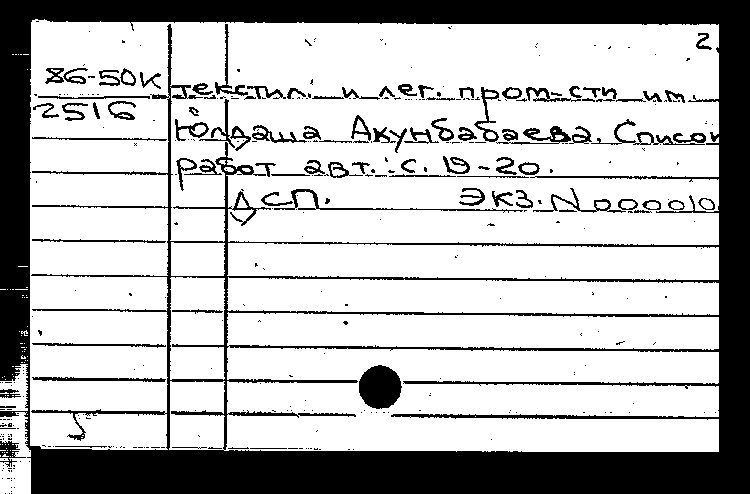 2.
86-50к текстил. и лег. пром-сти им.
2516 Юлдаша Акунбабаева. Список
работ авт.: с. 19-20.
ДСП. Экз. N 000010
5